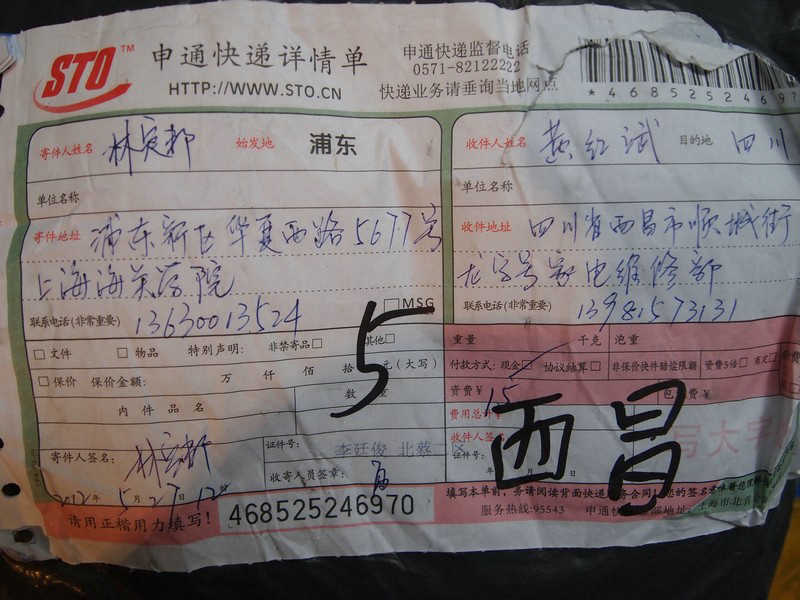 STO™ 申通快递详情单
HTTP://WWW.STO.CN
申通快递监督电话
0571-82122222
快递业务请垂询当地网点
*46852524697
寄件人姓名 林宾 始发地 浦东
单位名称
寄件地址 浦东新区华夏西路5677号
上海海关学院
联系电话(非常重要) 13630013524
MSG
收件人姓名 黄红斌 目的地 四川
单位名称
收件地址 四川省西昌市顺城街
龙字号家电维修部
联系电话(非常重要) 13981573131
文件 物品 特别声明: 非禁寄品 其他
保价 保价金额: 万 仟 佰 拾 元(大写)
内件品名 数量
5
重量 千克 泡重
付款方式: 现金 协议结算 非保价快件赔偿限额 资费5倍
资费¥ 15 包 费¥
费用总计¥
收件人签
证件号:
年 月
西昌
寄件人签名:
2012年5月27日12时
证件号: 李廷俊 北蔡
收寄人员签章:
请用正楷用力填写!
468525246970
填写本单前,务请阅读背面快递服务合同!您的签名意味着您理解
服务热线:95543 申通快递 部地址:上海市北